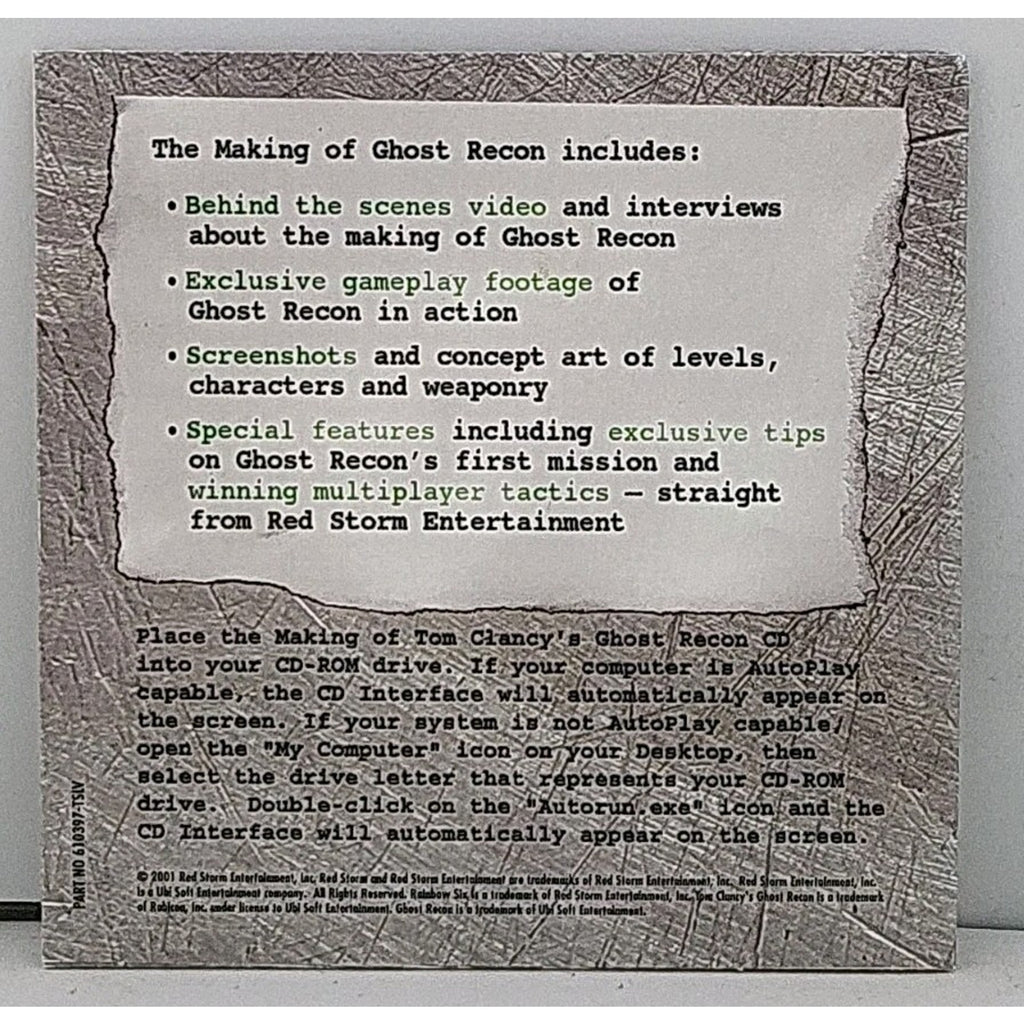 The Making of Ghost Recon includes:
• Behind the scenes video and interviews
about the making of Ghost Recon
• Exclusive gameplay footage of
Ghost Recon in action
• Screenshots and concept art of levels,
characters and weaponry
• Special features including exclusive tips
on Ghost Recon's first mission and
winning multiplayer tactics — straight
from Red Storm Entertainment
Place the Making of Tom Clancy's Ghost Recon CD
into your CD-ROM drive. If your computer is AutoPlay
capable, the CD Interface will automatically appear on
the screen. If your system is not AutoPlay capable,
open the "My Computer" icon on your Desktop, then
select the drive letter that represents your CD-ROM
drive. Double-click on the "Autorun.exe" icon and the
CD Interface will automatically appear on the screen.
PART NO 610397-TSLV
© 2001 Red Storm Entertainment, Inc. Red Storm and Red Storm Entertainment are trademarks of Red Storm Entertainment, Inc. Red Storm Entertainment, Inc.
is a Ubi Soft Entertainment company. All Rights Reserved. Rainbow Six is a trademark of Red Storm Entertainment, Inc. Tom Clancy's Ghost Recon is a trademark
of Rubicon, Inc. under license to Ubi Soft Entertainment. Ghost Recon is a trademark of Ubi Soft Entertainment.